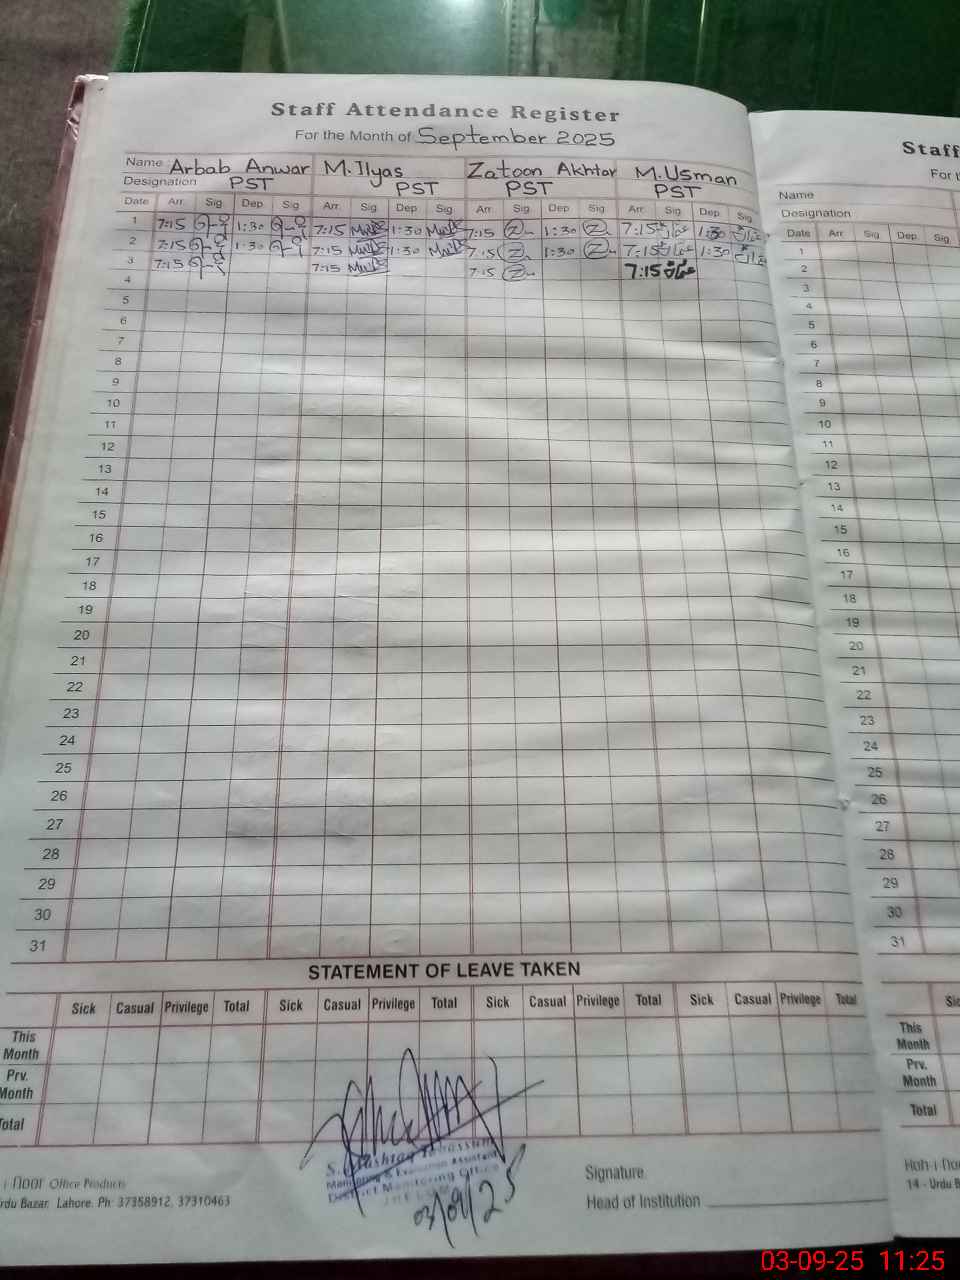 Staff Attendance Register
For the Month of September 2025
Name Arbab Anwar M.Ilyas Zatoon Akhtar M.Usman
Designation PST PST PST PST
Date Arr. Sig. Dep Sig Arr. Sig Dep Sig Arr. Sig. Dep. Sig. Arr. Sig. Dep. Sig.
1 7:15 1:30 7:15 1:30 7:15 Z 1:30 Z 7:15 عثمان 1:30 عثمان
2 7:15 1:30 7:15 1:30 7:15 Z 1:30 Z 7:15 عثمان 1:30 عثمان
3 7:15 7:15 7:15 Z 7:15 عثمان
4
5
6
7
8
9
10
11
12
13
14
15
16
17
18
19
20
21
22
23
24
25
26
27
28
29
30
31
STATEMENT OF LEAVE TAKEN
Sick Casual Privilege Total Sick Casual Privilege Total Sick Casual Privilege Total Sick Casual Privilege Total
This Month
Prv. Month
Total
District Monitoring Office
03/09/25
Office Products
Bazar, Lahore. Ph: 37358912, 37310463
Signature
Head of Institution
Staff
Name
Designation
Date Arr. Sig. Dep. Sig.
1
2
3
4
5
6
7
8
9
10
11
12
13
14
15
16
17
18
19
20
21
22
23
24
25
26
27
28
29
30
31
This Month
Prv. Month
Total
14 - Urdu
03-09-25 11:25